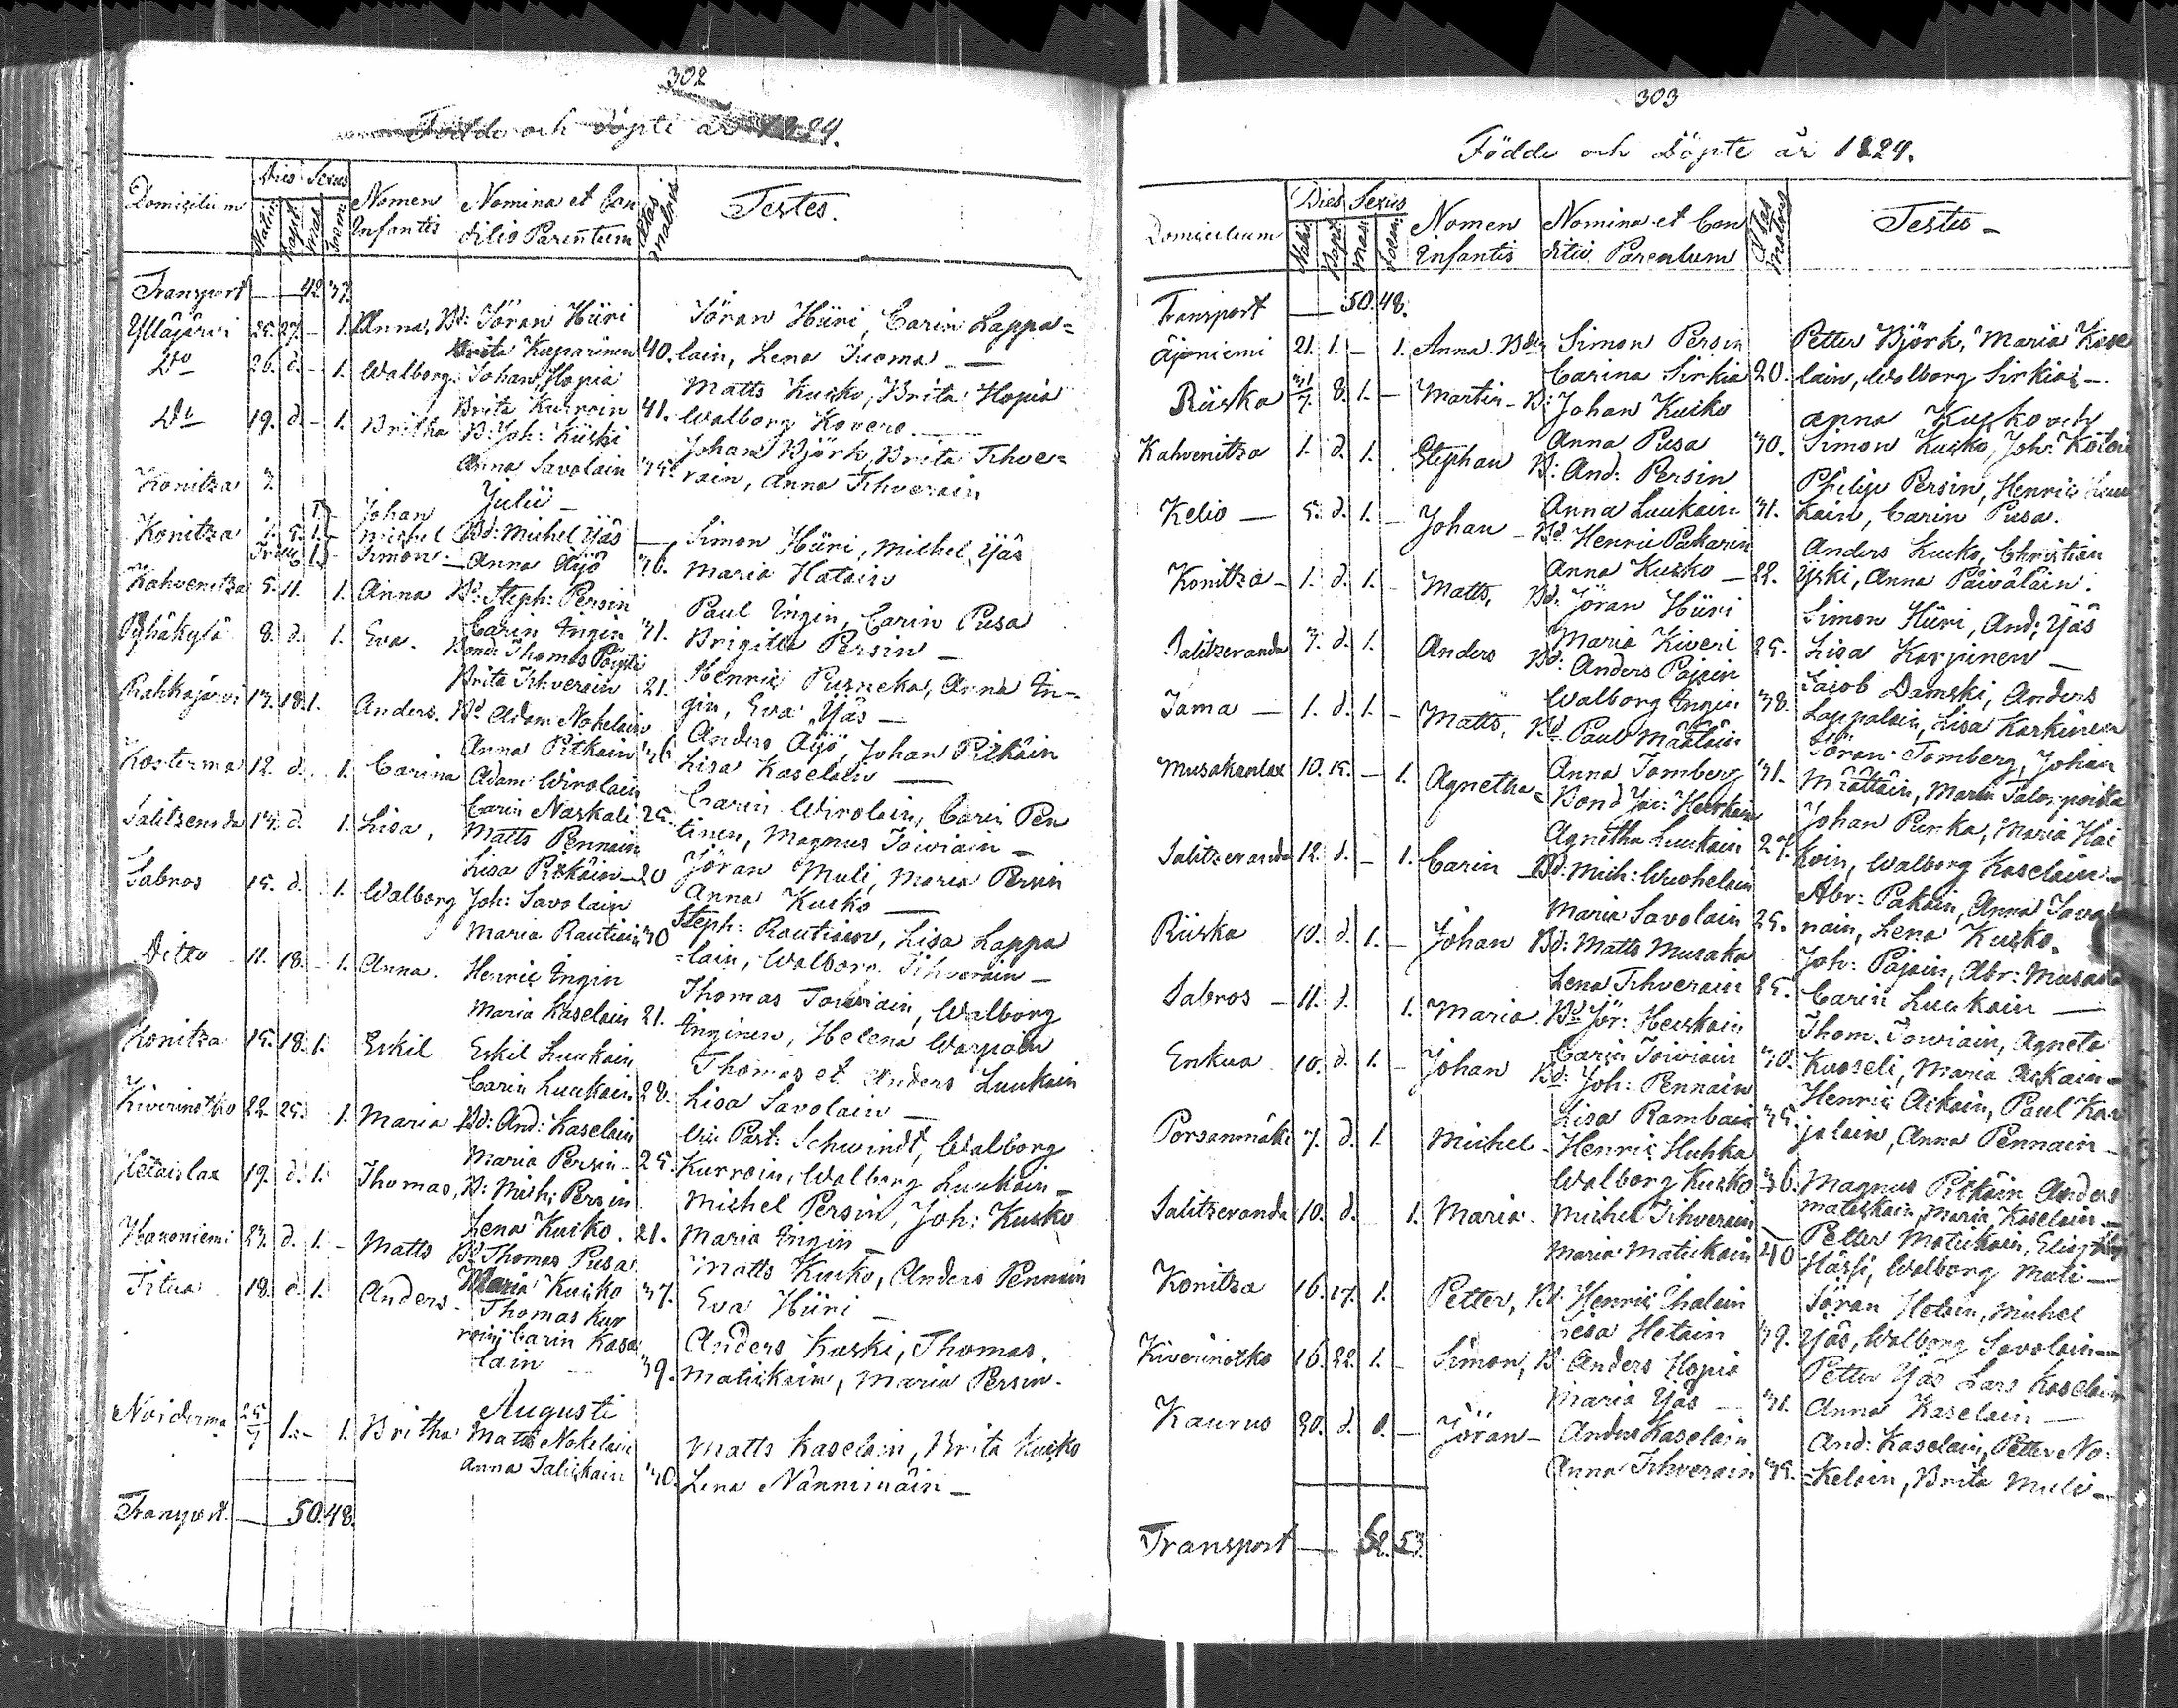 302
Födde och döpte år 1824.
Domicilium Dies Sexus Nomen Infantis Nomina et Conditio Parentum Ætas Matris Testes.
Natus Bapt. Mas. Foem.
Transport — 42 37.
Yllåjärvi 25. 27. – 1. Anna, Bd: Jöran Hüri Jöran Hüri, Carin Lappa=
Brita Kuparinen 40. lain, Lena Tuoma —
Do 26. d. – 1. Walborg. Johan Hopia Matts Kuiko, Brita Hopia
Brita Kurroin 41. Walborg Kovero —
Do 19. d. – 1. Britha B: Joh: Kiiski Johan Björk, Brita Tihve=
Anna Savolain 35. rain, Anna Tihverain
Konitza 3.
Julii —
Johan
Konitza 1. 5. 1. – Michel Bd: Michel Yäs — Simon Hüri, Michel Yäs
Simon — Anna Äyö 36. Maria Hatain
Kahvenitza 5. 11. 1. Anna B: Steph: Persin Paul Ingin, Carin Pusa
Carin Ingin 31. Brigitta Persin —
Pyhäkylä 8. d. 1. Eva. Bond: Thomas Pöysti Henric Purneka, Anna In-
Brita Tihverain 21. gin, Eva Yäs —
Rahkajärvi 13. 18. 1. Anders. Bd Adam Nokelain Anders Äyö, Johan Pitkäin
Anna Pitkäin 36 Lisa Kaselain —
Kosterma 12. d. 1. Carina Adam Wirolain Carin Wirolain, Carin Pen
Carin Naskali 25. tinen, Magnus Toiviain —
Salitzeranda 14. d. 1. Lisa, Matts Pennain Jöran Muli, Maria Persin
Lisa Pitkäin — 20 Anna Kuiko —
Sabros 15. d. 1. Walborg Joh: Savolain Steph: Rautiain, Lisa Lappa
Maria Rautiain 30 =lain, Walborg Tihverain —
Ditto 11. 18. – 1. Anna. Henric Ingin Thomas Toiviain, Walborg
Maria Kaselain 21. Inginen, Helena Warpain
Konitza 15. 18. 1. Eskil Eskil Luukain Thomas et Anders Luukain
Carin Luukain 28. Lisa Savolain —
Kiverinotko 22. 25. 1. Maria Bd: And: Kaselain Vic Past: Schwindt, Walborg
Maria Persin — 25. Kurroin, Walborg Luukain —
Hetaislax 19. d. 1. Thomas, B: Mich: Persin Michel Persin, Joh: Kuiko
Lena Kuiko. 21. Maria Ingin —
Haroniemi 23. d. 1. – Matts Bd Thomas Pusa Matts Kuiko, Anders Pennain
Maria Kuiko 37. Eva Hüri —
Titua 18. d. 1. Anders. Thomas Kur
roin, Carin Kase Anders Kuski, Thomas.
lain — 39. Matiikain, Maria Persin.
Augusti
Noiderma 25/7 1. – 1. Britha Matts Nokelain Matts Kaselain, Brita Kuiko
Anna Taliikain 30. Lena Nännimäin —
Transport. — 50. 48.
303
Födde och döpte år 1824.
Domicilium Dies Sexus Nomen Infantis Nomina et Conditio Parentum Ætas Matris Testes —
Natus Bapt. Mas. Foem.
Transport — 50. 48.
Äjöniemi 21. 1. – 1. Anna. Bden Simon Persin Petter Björk, Maria Kase
Carina Sirkiä 20. lain, Walborg Sirkiäi —
Riiska 31/7. 8. 1. – Martin – B: Johan Kuiko Anna Kuskoch
Anna Pusa 30. Simon Kuiko, Joh:
Kahvenitza 1. d. 1. Stephan B: And: Persin Philip Persin, Henric Luu
Anna Luukain 31. kain, Carin Pusa.
Kelio — 5. d. 1. – Johan – Bd Henric Pakarin Anders Kuiko, Christian
Anna Kusko — 22. Yrki, Anna Päiväläin.
Konitza – 1. d. 1. – Matts, Bd: Jöran Hüri Simon Hüri, And: Yäs
Maria Kiveri 25. Lisa Karpinen —
Salitzeranda 7. d. 1. Anders Bd: Anders Pajain Jacob Damski, Anders
Walborg Ingin 38. Lappalain, Lisa Karkinen
Jama — 1. d. 1. – Matts, Bd Paul Määttäin Jöran Tomberg, Johan
Anna Tomberg 31. Määttäin, Maria Talonpoika
Musakanlax 10. 15. – 1. Agnetha = Bond Jac: Heiskain Johan Punka, Maria Hai
Agnetha Luukain 27. koin, Walborg Kaselain —
Salitzeranda 12. d. – 1. Carin – Bd: Mich: Wuohelain Abr: Pakain, Anna Sava
Maria Savolain 25. nain, Lena Kusko.
Riiska 10. d. 1. – Johan Bd: Matts Musaka Joh: Pajain, Abr: Musaka
Lena Tihverain 25. Carin Luukain —
Sabros – 11. d. 1. Maria. Bd Jör: Heiskain Thom. Toiviain, Agneta
Carin Toiviain 30. Kuoseli, Maria Aikain —
Enkua 10. d. 1. – Johan Bd: Joh: Pennain Henric Aikain, Paul Kar
Lisa Rambain 35. jalain, Anna Pennain —
Porsanmäki 7. d. 1. Michel – Henric Huhka
Walborg Kusko 36. Magnus Pitkäin Anders
Salitzeranda 10. d. 1. Maria. Michel Tihverain Matiskain, Maria Kaselain —
Maria Matiikain 40 Petter Matiikain,
Härsi, Walborg Muli —
Konitza 16. 17. 1. Petter, Bd: Henric Ihalain Jöran Hotain, Michel
Lisa Hetain 39. Yäs, Walborg Savolain —
Kiverinotko 16. 22. 1. – Simon, B: Anders Hopia Petter Yäs Lars Kaselain
Maria Yäs — 31. Anna Kaselain —
Kaurus 30. d. 0. – Jöran – Anders Kaselain And: Kaselain, Petter No:
Anna Tihverain 35. =kelain, Brita Muli —
Transport — 62. 53.